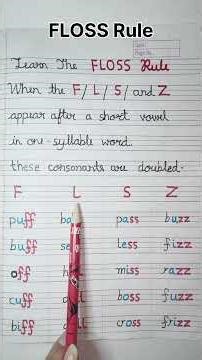 FLOSS Rule
Learn The FLOSS Rule
When the F/L/S/ and Z
appear after a short vowel
in one syllable word.
these consonants are doubled.
F L S Z
puff pass buzz
buff less fizz
off miss razz
cuff boss fuzz
biff cross frizz